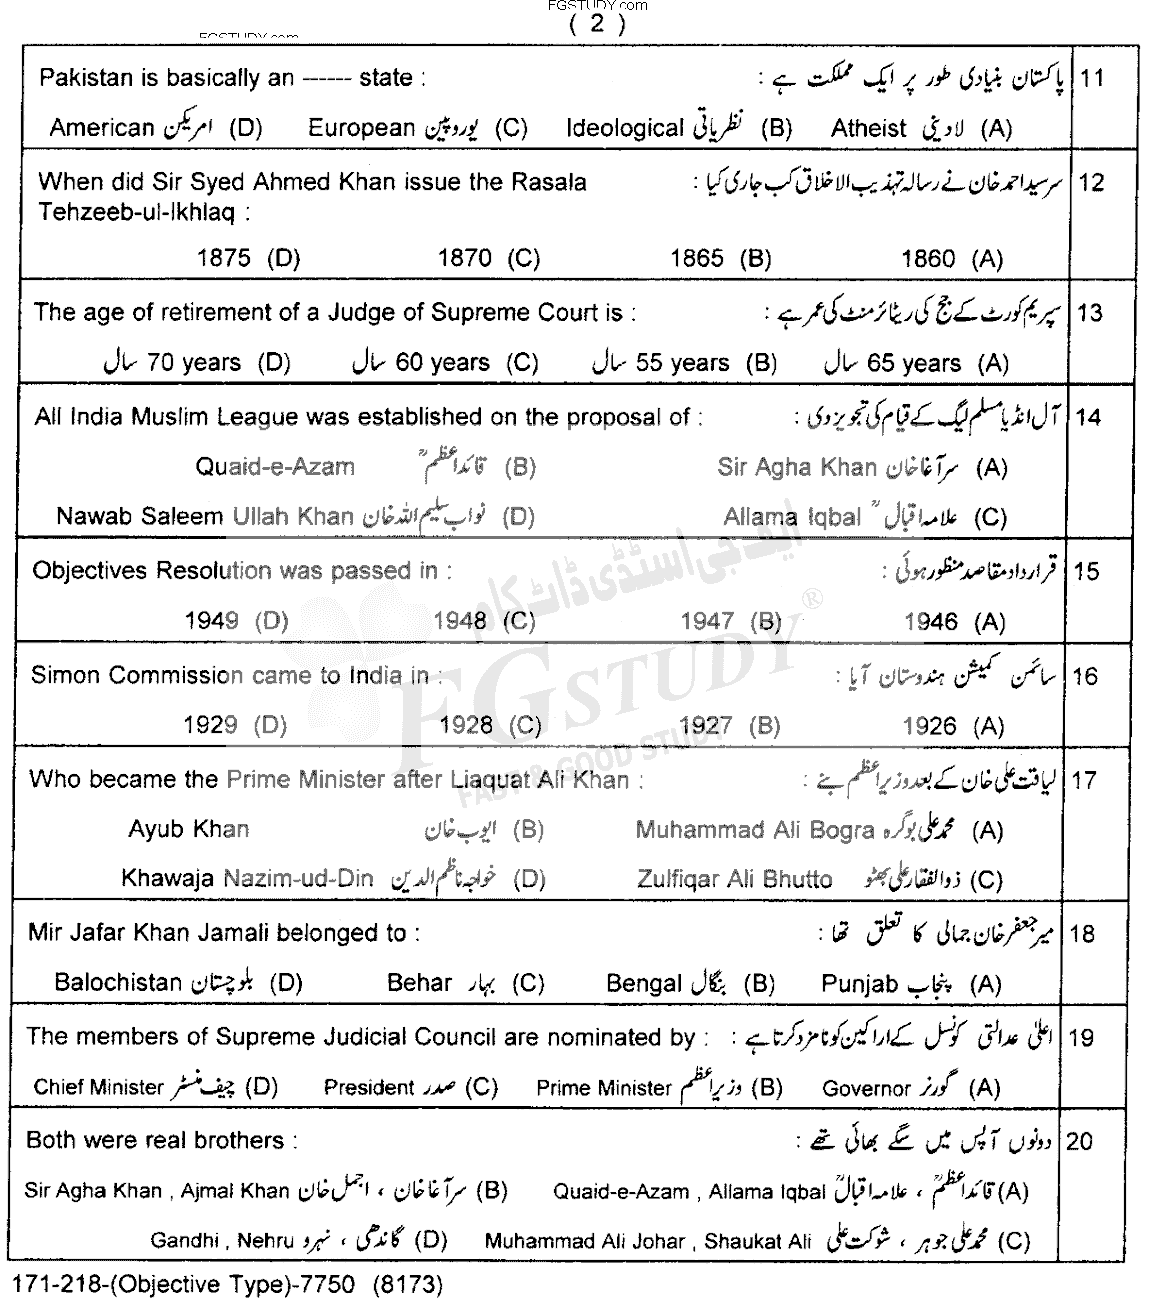 FGSTUDY.com
( 2 )
FGSTUDY.com
Pakistan is basically an ------ state : پاکستان بنیادی طور پر ایک مملکت ہے : 11
American امریکن (D) European یوروپین (C) Ideological نظریاتی (B) Atheist لادینی (A)
When did Sir Syed Ahmed Khan issue the Rasala سرسید احمد خان نے رسالہ تہذیب الاخلاق کب جاری کیا : 12
Tehzeeb-ul-Ikhlaq :
1875 (D) 1870 (C) 1865 (B) 1860 (A)
The age of retirement of a Judge of Supreme Court is : سپریم کورٹ کے جج کی ریٹائرمنٹ کی عمر ہے : 13
سال 70 years (D) سال 60 years (C) سال 55 years (B) سال 65 years (A)
All India Muslim League was established on the proposal of : آل انڈیا مسلم لیگ کے قیام کی تجویز دی : 14
Quaid-e-Azam قائداعظمؒ (B) Sir Agha Khan سر آغا خان (A)
Nawab Saleem Ullah Khan نواب سلیم اللہ خان (D) Allama Iqbal علامہ اقبالؒ (C)
Objectives Resolution was passed in : قرارداد مقاصد منظور ہوئی : 15
1949 (D) 1948 (C) 1947 (B) 1946 (A)
Simon Commission came to India in : سائمن کمیشن ہندوستان آیا : 16
1929 (D) 1928 (C) 1927 (B) 1926 (A)
Who became the Prime Minister after Liaquat Ali Khan : لیاقت علی خان کے بعد وزیراعظم بنے : 17
Ayub Khan ایوب خان (B) Muhammad Ali Bogra محمد علی بوگرہ (A)
Khawaja Nazim-ud-Din خواجہ ناظم الدین (D) Zulfiqar Ali Bhutto ذوالفقار علی بھٹو (C)
Mir Jafar Khan Jamali belonged to : میر جعفر خان جمالی کا تعلق تھا : 18
Balochistan بلوچستان (D) Behar بہار (C) Bengal بنگال (B) Punjab پنجاب (A)
The members of Supreme Judicial Council are nominated by : اعلیٰ عدالتی کونسل کے اراکین کو نامزد کرتا ہے : 19
Chief Minister چیف منسٹر (D) President صدر (C) Prime Minister وزیراعظم (B) Governor گورنر (A)
Both were real brothers : دونوں آپس میں سگے بھائی تھے : 20
Sir Agha Khan , Ajmal Khan سر آغا خان ، اجمل خان (B) Quaid-e-Azam , Allama Iqbal قائداعظمؒ ، علامہ اقبالؒ (A)
Gandhi , Nehru گاندھی ، نہرو (D) Muhammad Ali Johar , Shaukat Ali محمد علی جوہر ، شوکت علی (C)
171-218-(Objective Type)-7750 (8173)
ایف جی اسٹڈی ڈاٹ کام
FGSTUDY®
FAST & GOOD STUDY